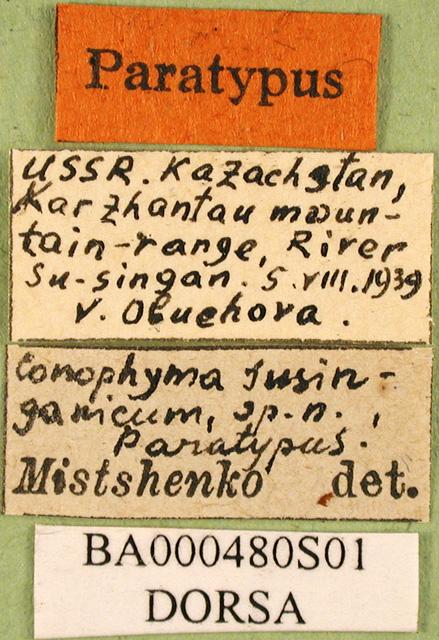 Paratypus
USSR. Kazachstan,
Karzhantau moun-
tain-range, River
Su-singan. 5.VIII.1939
V. Obuchova.
Conophyma susin-
ganicum, sp.n.,
Paratypus.
Mistshenko det.
BA000480S01
DORSA